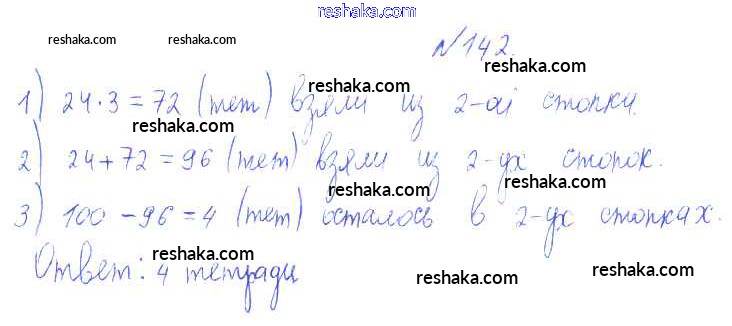 www.reshaka.com
reshaka.com reshaka.com
№142.
reshaka.com
reshaka.com
1) 24·3=72 (тет) взяли из 2-ой стопки.
reshaka.com
2) 24+72=96 (тет) взяли из 2-ух стопок.
reshaka.com reshaka.com
3) 100-96=4 (тет) осталось в 2-ух стопках.
reshaka.com reshaka.com reshaka.com
Ответ: 4 тетради